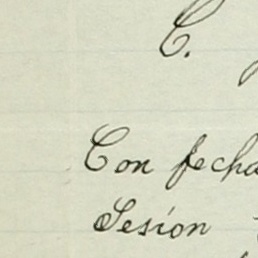 C.
Con fecha
Sesión